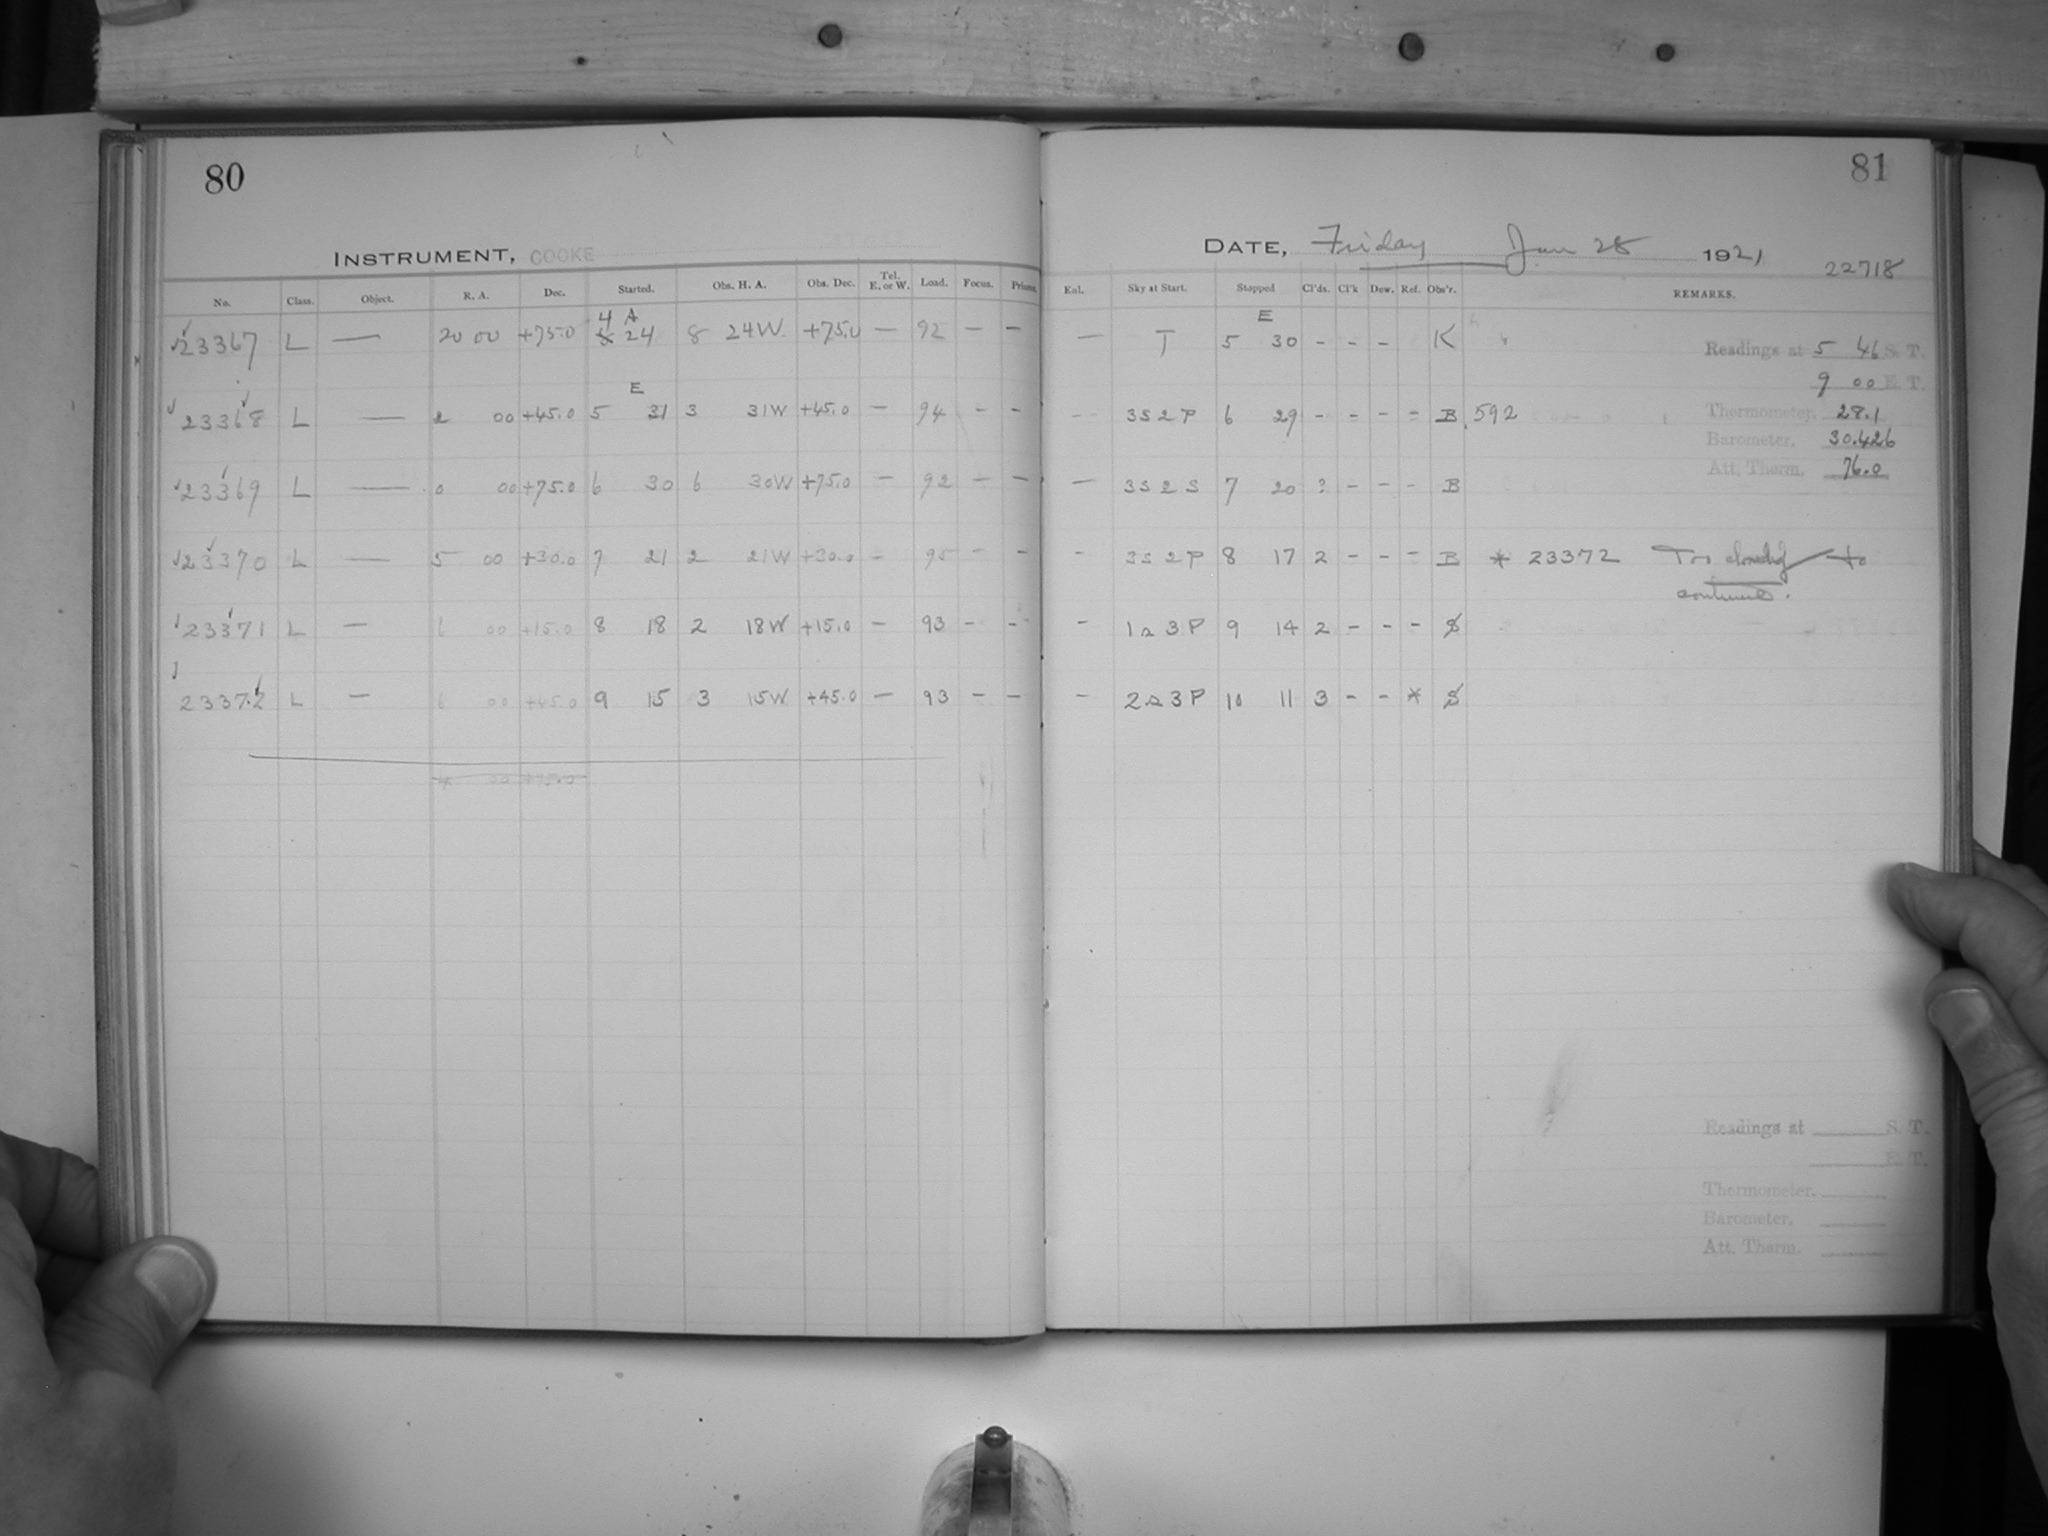 80
INSTRUMENT, COOKE
No. Class. Object. R. A. Dec. Started. Obs. H. A. Obs. Dec. Tel. E. or W. Load. Focus. Prisms.
4 A
23367 L — 20 00 +75.0 24 8 24W +75.0 — 92 — —
E
23368 L — 2 00 +45.0 5 31 3 31W +45.0 — 94 - -
23369 L — 0 00 +75.0 6 30 6 30W +75.0 — 92 - —
23370 L — 5 00 +30.0 7 21 2 21W +30.0 - 95 - -
23371 L — 6 00 +15.0 8 18 2 18W +15.0 — 93 - -
23372 L — 6 00 +45.0 9 15 3 15W +45.0 — 93 - -
4 00 +75.0
81
DATE, Friday Jan 28 1921
22718
Eal. Sky at Start. Stopped Cl'ds. Cl'k Dew. Ref. Obs'r. REMARKS.
E
— T 5 30 - - - K
-- 3S2P 6 29 - - - - B 592
— 3S2S 7 20 ? - - - B
- 3S2P 8 17 2 - - - B * 23372 Too cloudy to
continue.
- 1a3P 9 14 2 - - - S
- 2a3P 10 11 3 - - * S
Readings at 5 46 S. T.
9 00 E. T.
Thermometer. 28.1
Barometer, 30.426
Att. Therm. 76.0
Readings at S. T.
E. T.
Thermometer.
Barometer,
Att. Therm.